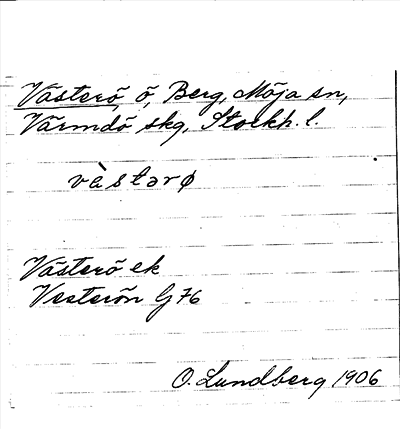 Västerö, ö, Berg, Möja sn,
Värmdö skg, Stockh. l.
västərø
Västerö ek
Vesterön G 76
O. Lundberg 1906